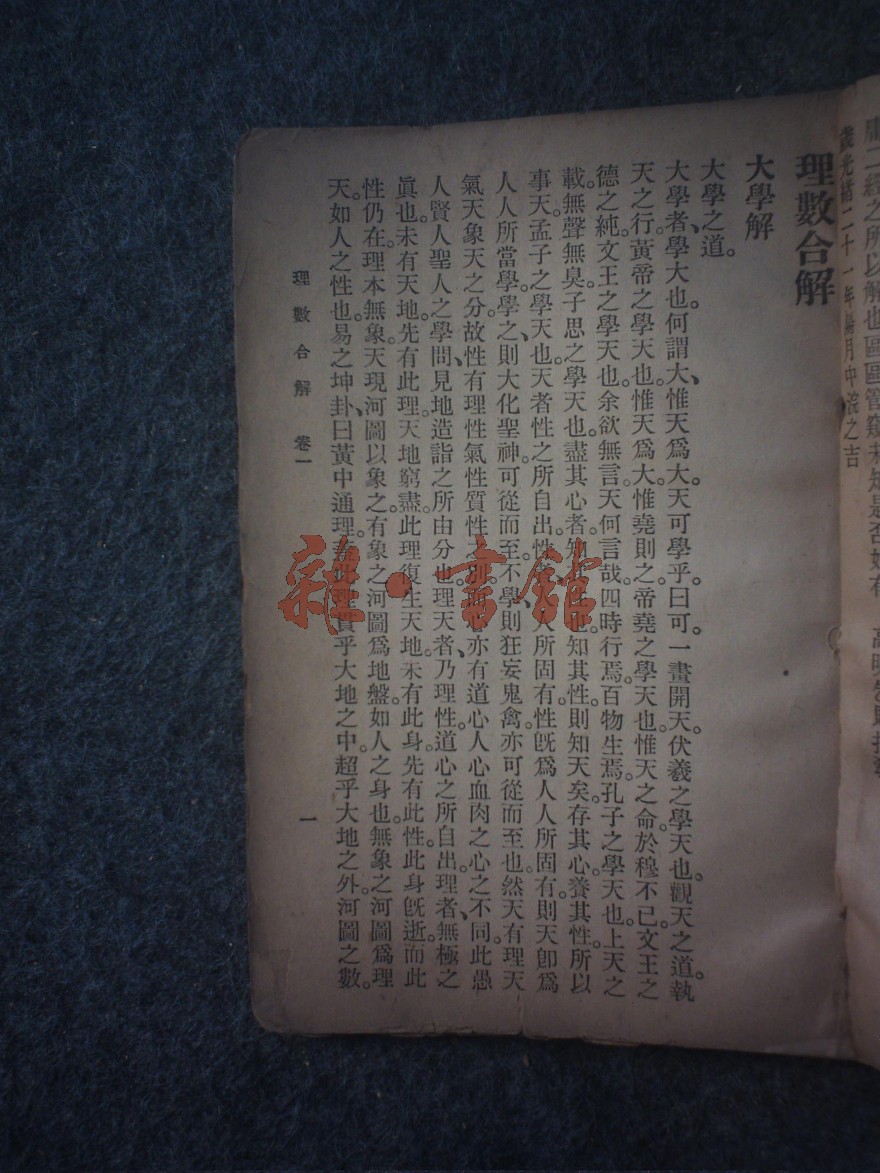 庸二經之所以解也區區管窺未知是否如有
歲光緒二十一年
月中浣之吉
理數合解
大學解
大學之道。
大學者、學大也。何謂大、惟天爲大。天可學乎。曰可。一畫開天。伏羲之學天也。觀天之道。執
天之行。黃帝之學天也。惟天爲大。惟堯則之。帝堯之學天也。惟天之命。於穆不已。文王之
德之純。文王之學天也。余欲無言。天何言哉。四時行焉。百物生焉。孔子之學天也。上天之
載。無聲無臭。子思之學天也。盡其心者。知其性也。知其性。則知天矣。存其心。養其性。所以
事天。孟子之學天也。天者性之所自出。性者、人所固有。性旣爲人人所固有。則天卽爲
人人所當學。學之、則大化聖神。可從而至。不學、則狂妄鬼禽。亦可從而至也。然天有理天
氣天象天之分。故性有理性氣性質性之別。而心亦有道心人心血肉之心之不同。此愚
人賢人聖人之學問、見地造詣之所由分也。理天者、乃理性。道心之所自出。理者、無極之
眞也。未有天地。先有此理。天地窮盡。此理復生天地。未有此身。先有此性。此身旣逝。而此
性仍在。理本無象。天現河圖以象之。有象之河圖爲地盤。如人之身也。無象之河圖爲理
天。如人之性也。易之坤卦、曰黃中通理。蓋此理貫乎大地之中。超乎大地之外。河圖之數。
理數合解 卷一
一
雜·書館